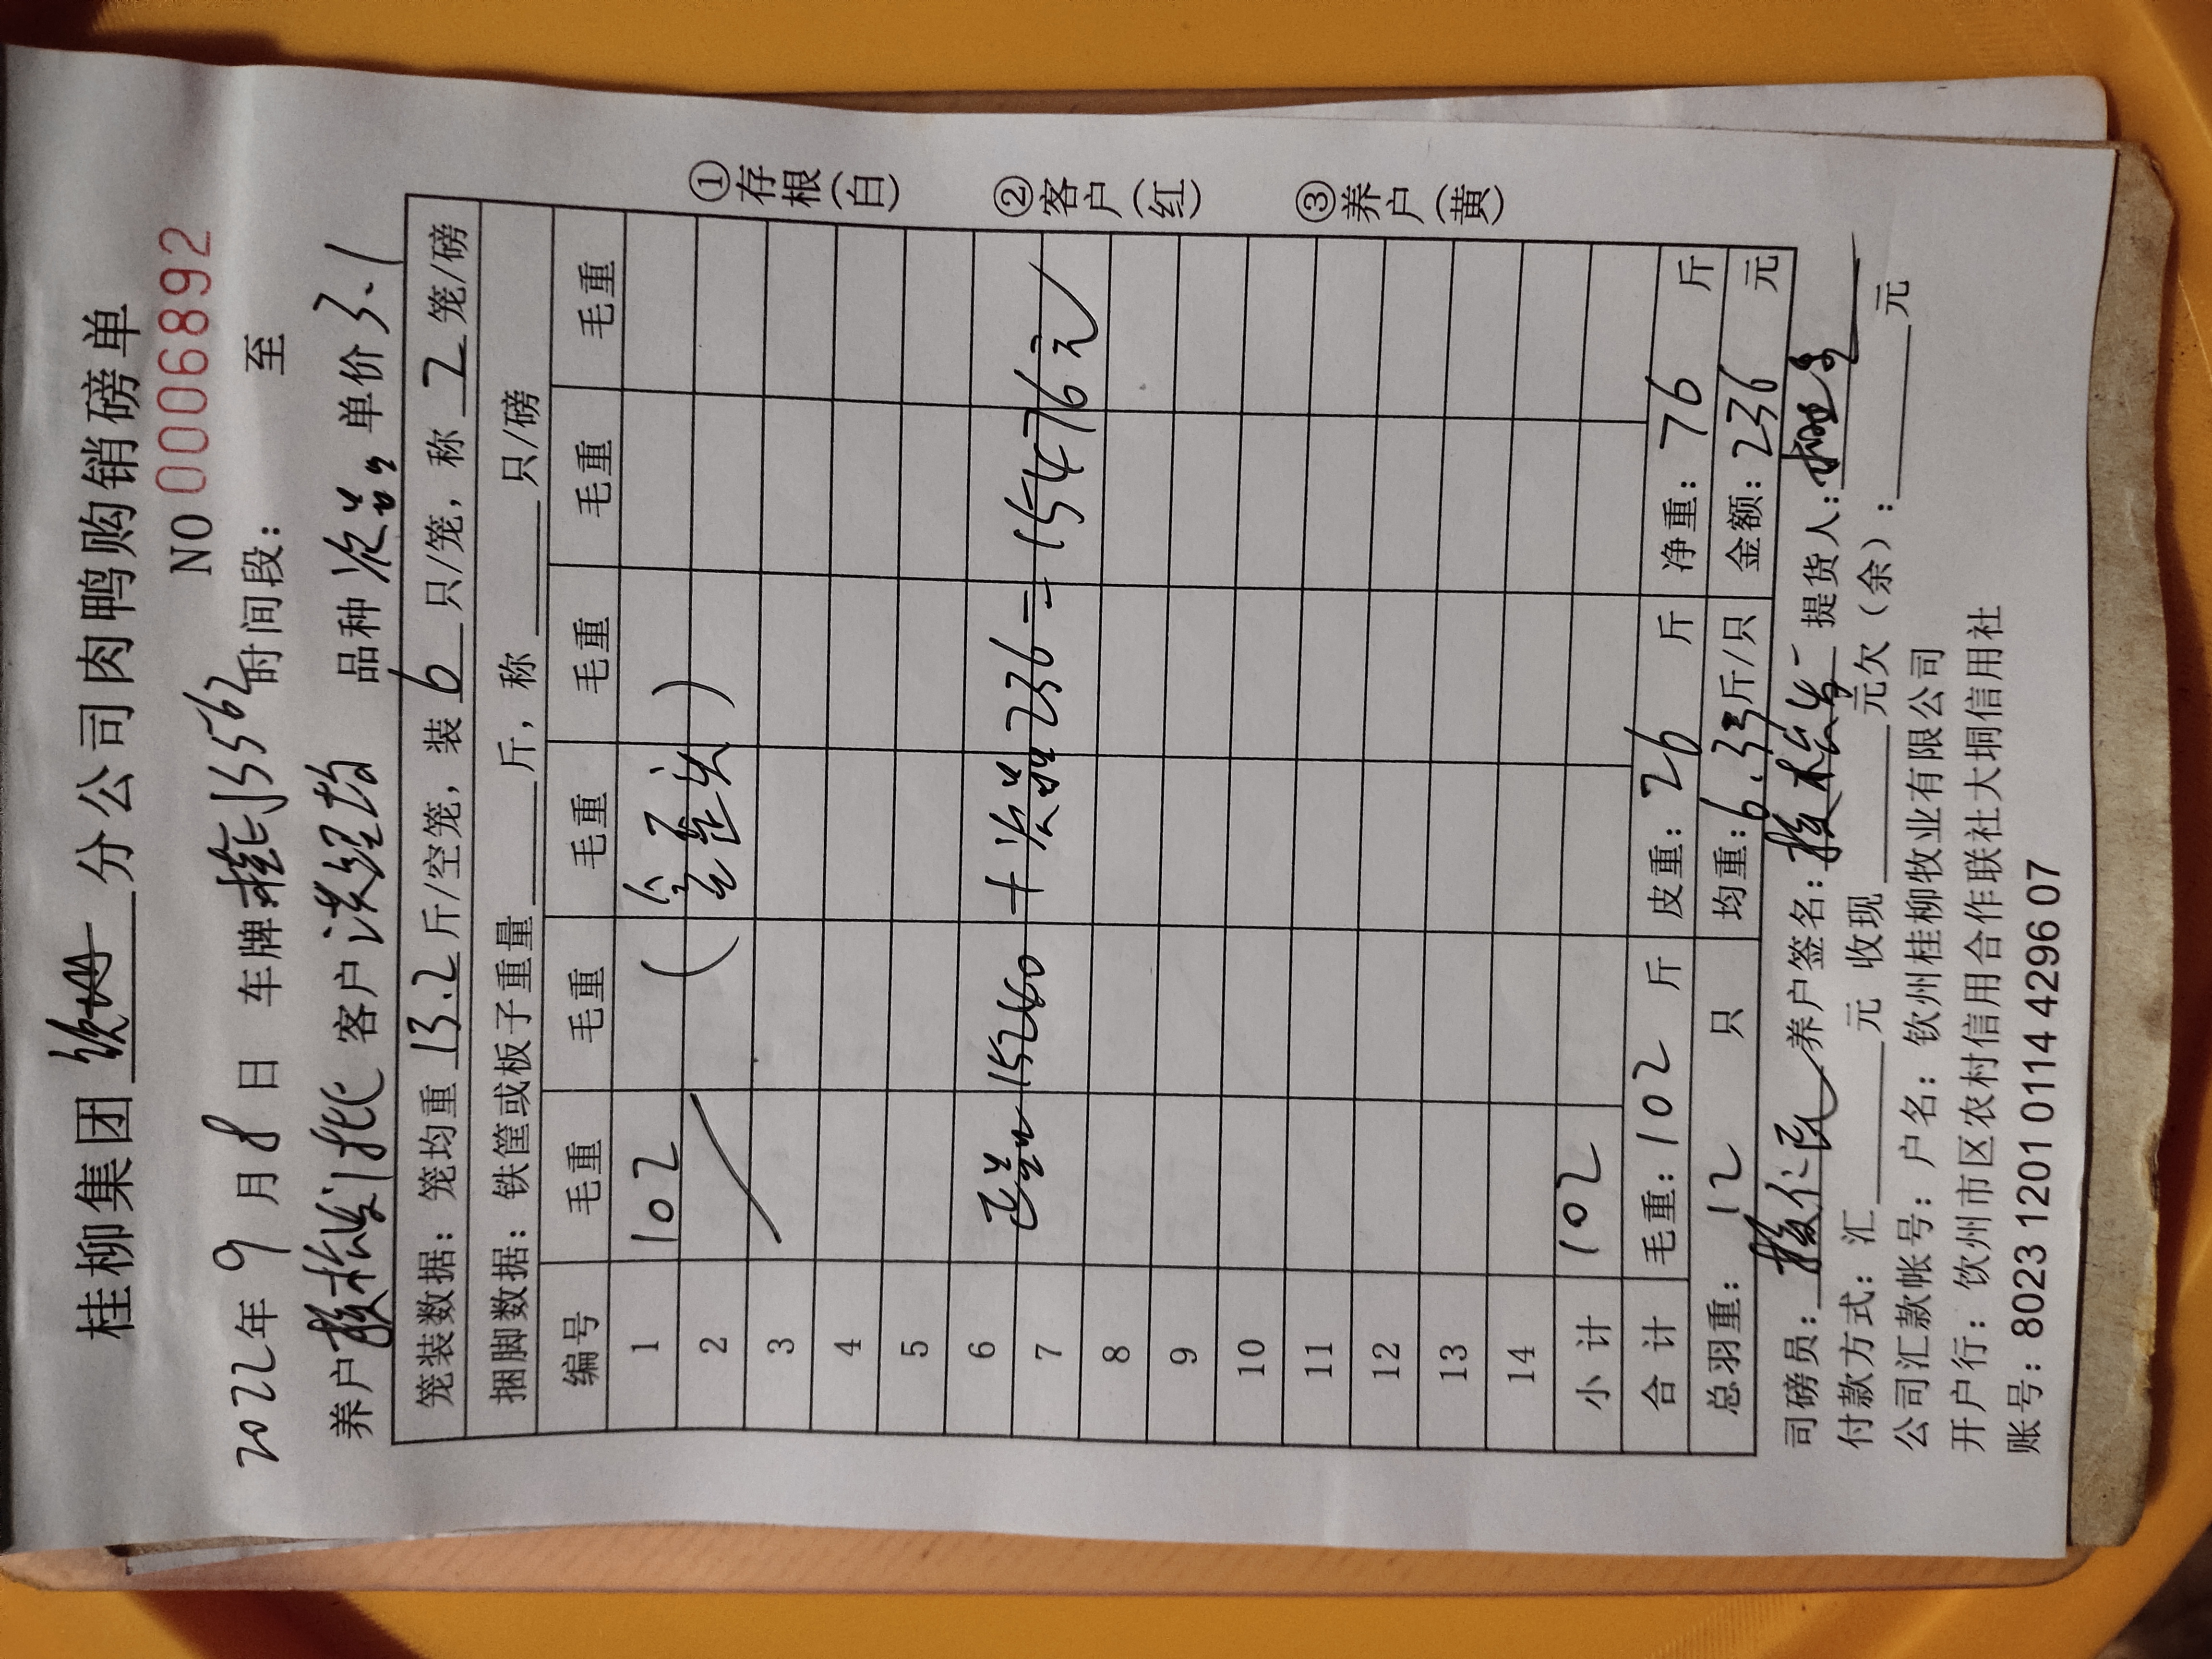 桂柳集团 钦州 分公司肉鸭购销磅单
NO 0006892
2022年 9 月 8 日 车牌 桂 J3562 时间段: 至
养户 客户 洪经均 品种 次品 单价 3.1
笼装数据: 笼均重 13.2 斤/空笼, 装 6 只/笼, 称 2 笼/磅
捆脚数据: 铁筐或板子重量 斤, 称 只/磅
编号 毛重 毛重 毛重 毛重 毛重 毛重
1 102
2
3
4
5
6
7 正品 15240 + 次品 236 = 15476元
8
9
10
11
12
13
14
小计 102
合计 毛重: 102 斤 皮重: 26 斤 净重: 76 斤
总羽重: 12 只 均重: 6.33 斤/只 金额: 236 元
司磅员: 养户签名: 提货人:
付款方式: 汇 元 收现 元欠(余): 元
公司汇款帐号: 户名: 钦州桂柳牧业有限公司
开户行: 钦州市区农村信用合作联社大垌信用社
账号: 8023 1201 0114 4296 07
①存根(白)
②客户(红)
③养户(黄)